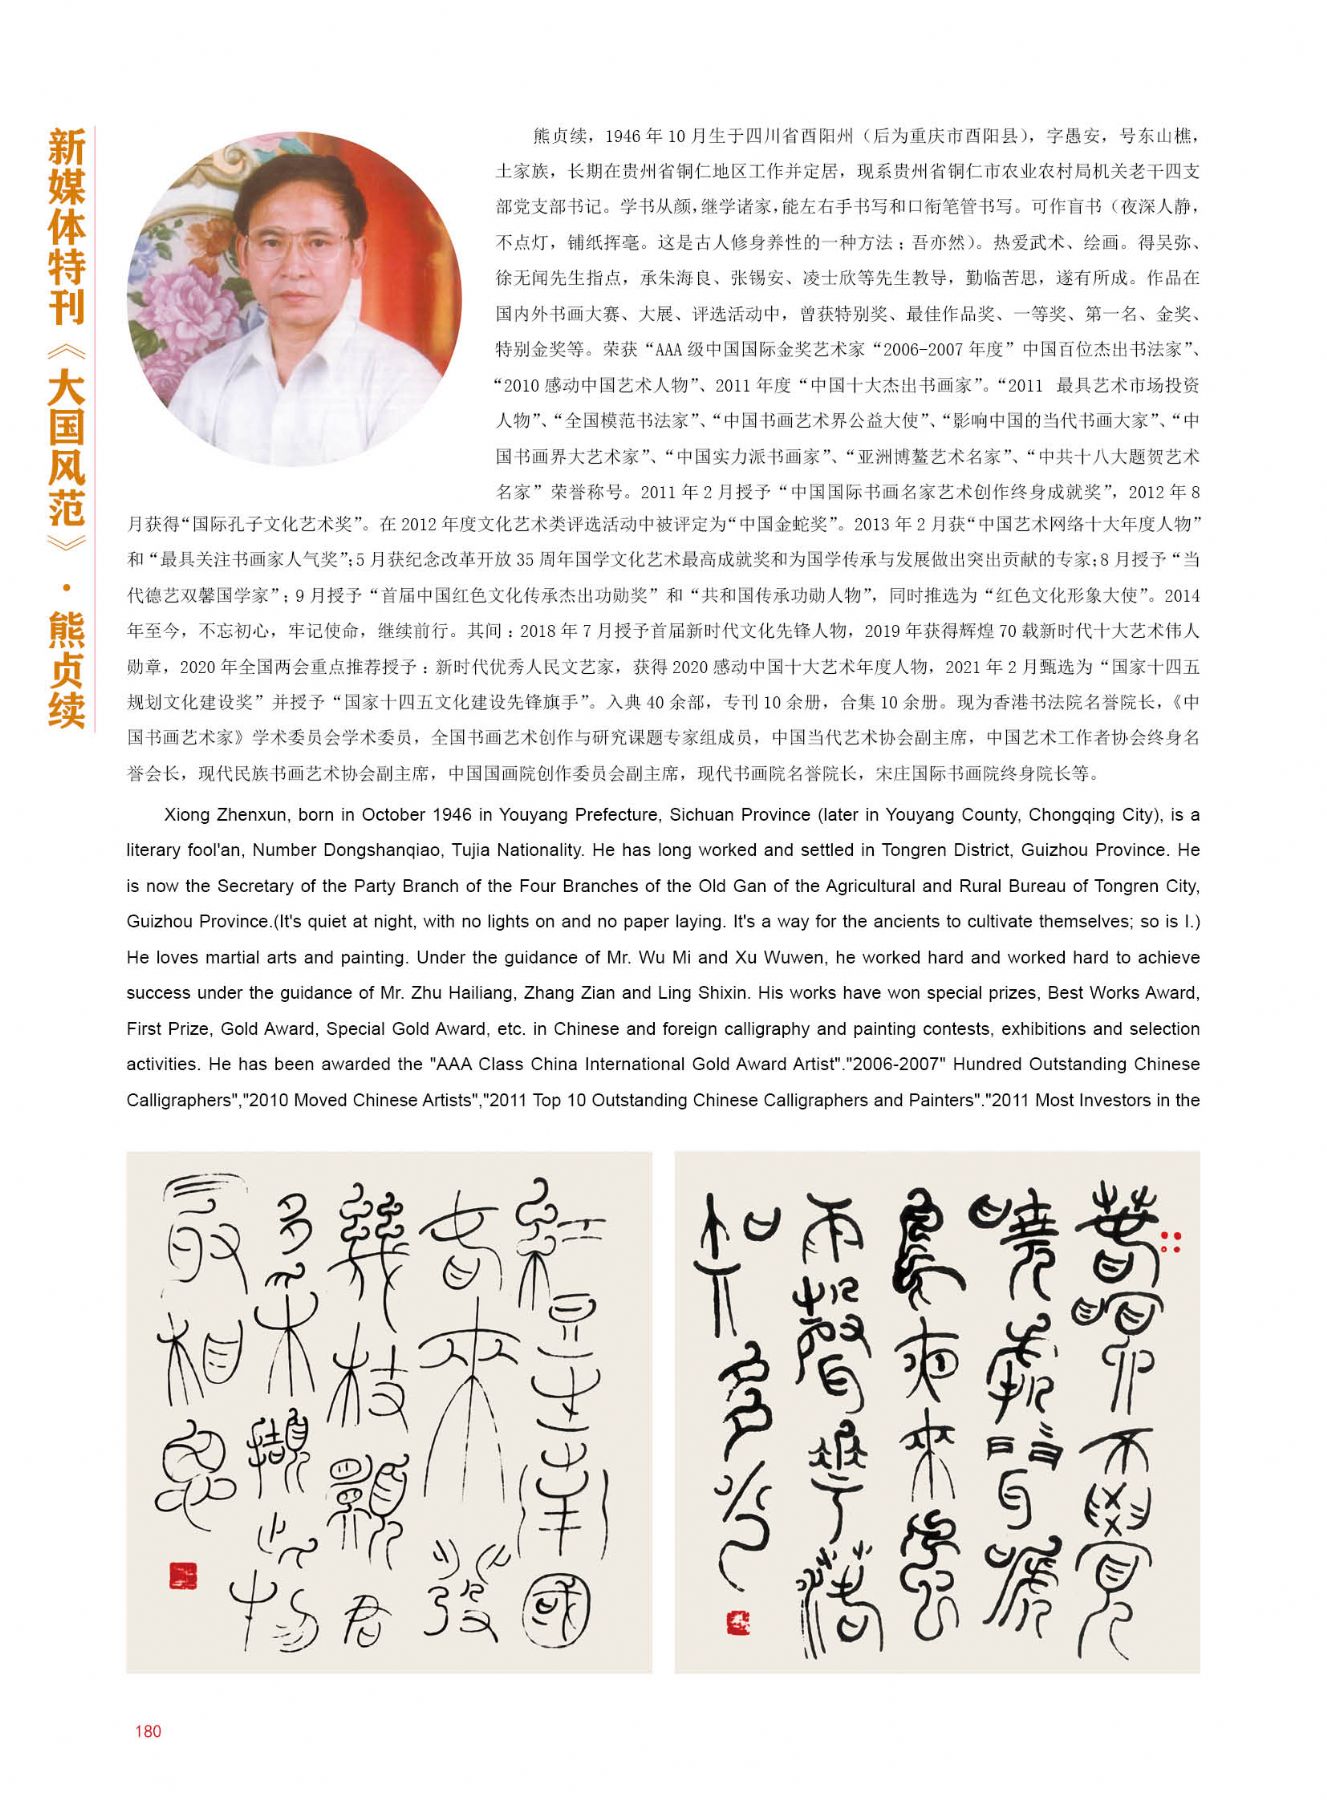 新媒体特刊《大国风范》·熊贞续
熊贞续，1946 年 10 月生于四川省酉阳州（后为重庆市酉阳县），字愚安，号东山樵，
土家族，长期在贵州省铜仁地区工作并定居，现系贵州省铜仁市农业农村局机关老干四支
部党支部书记。学书从颜，继学诸家，能左右手书写和口衔笔管书写。可作盲书（夜深人静，
不点灯，铺纸挥毫。这是古人修身养性的一种方法；吾亦然）。热爱武术、绘画。得吴弥、
徐无闻先生指点，承朱海良、张锡安、凌士欣等先生教导，勤临苦思，遂有所成。作品在
国内外书画大赛、大展、评选活动中，曾获特别奖、最佳作品奖、一等奖、第一名、金奖、
特别金奖等。荣获“AAA 级中国国际金奖艺术家“2006-2007 年度”中国百位杰出书法家”、
“2010 感动中国艺术人物”、2011 年度“中国十大杰出书画家”。“2011 最具艺术市场投资
人物”、“全国模范书法家”、“中国书画艺术界公益大使”、“影响中国的当代书画大家”、“中
国书画界大艺术家”、“中国实力派书画家”、“亚洲博鳌艺术名家”、“中共十八大题贺艺术
名家”荣誉称号。2011 年 2 月授予“中国国际书画名家艺术创作终身成就奖”，2012 年 8
月获得“国际孔子文化艺术奖”。在 2012 年度文化艺术类评选活动中被评定为“中国金蛇奖”。2013 年 2 月获“中国艺术网络十大年度人物”
和“最具关注书画家人气奖”；5 月获纪念改革开放 35 周年国学文化艺术最高成就奖和为国学传承与发展做出突出贡献的专家；8 月授予“当
代德艺双馨国学家”；9 月授予“首届中国红色文化传承杰出功勋奖”和“共和国传承功勋人物”，同时推选为“红色文化形象大使”。2014
年至今，不忘初心，牢记使命，继续前行。其间：2018 年 7 月授予首届新时代文化先锋人物，2019 年获得辉煌 70 载新时代十大艺术伟人
勋章，2020 年全国两会重点推荐授予：新时代优秀人民文艺家，获得 2020 感动中国十大艺术年度人物，2021 年 2 月甄选为“国家十四五
规划文化建设奖”并授予“国家十四五文化建设先锋旗手”。入典 40 余部，专刊 10 余册，合集 10 余册。现为香港书法院名誉院长，《中
国书画艺术家》学术委员会学术委员，全国书画艺术创作与研究课题专家组成员，中国当代艺术协会副主席，中国艺术工作者协会终身名
誉会长，现代民族书画艺术协会副主席，中国国画院创作委员会副主席，现代书画院名誉院长，宋庄国际书画院终身院长等。
Xiong Zhenxun, born in October 1946 in Youyang Prefecture, Sichuan Province (later in Youyang County, Chongqing City), is a
literary fool'an, Number Dongshanqiao, Tujia Nationality. He has long worked and settled in Tongren District, Guizhou Province. He
is now the Secretary of the Party Branch of the Four Branches of the Old Gan of the Agricultural and Rural Bureau of Tongren City,
Guizhou Province.(It's quiet at night, with no lights on and no paper laying. It's a way for the ancients to cultivate themselves; so is I.)
He loves martial arts and painting. Under the guidance of Mr. Wu Mi and Xu Wuwen, he worked hard and worked hard to achieve
success under the guidance of Mr. Zhu Hailiang, Zhang Zian and Ling Shixin. His works have won special prizes, Best Works Award,
First Prize, Gold Award, Special Gold Award, etc. in Chinese and foreign calligraphy and painting contests, exhibitions and selection
activities. He has been awarded the "AAA Class China International Gold Award Artist"."2006-2007" Hundred Outstanding Chinese
Calligraphers","2010 Moved Chinese Artists","2011 Top 10 Outstanding Chinese Calligraphers and Painters"."2011 Most Investors in the
紅豆生南國
春來發
幾枝願君
多采擷此物
最相思
春眠不覺
曉處處聞啼
鳥夜來風
雨聲花落
知多少
180